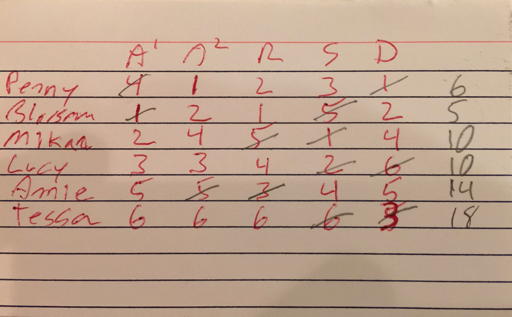 A¹ A² R S D
Penny 4 1 2 3 1 6
Blossom 1 2 1 5 2 5
Mikaa 2 4 5 1 4 10
Lucy 3 3 4 2 6 10
Annie 5 5 3 4 5 14
Tessa 6 6 6 6 3 18